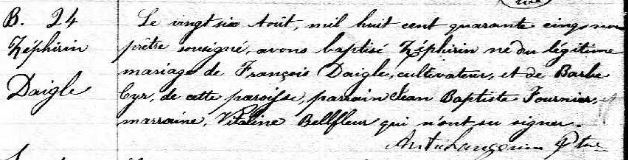 B. 24
Zéphirin
Daigle
Le vingt six Août, mil huit cent quarante cinq nous
prêtre soussigné, avons baptisé Zéphirin né du légitime
mariage de François Daigle, cultivateur, et de Barbe
Cyr, de cette paroisse, parrain Jean Baptiste Fournier, et
marraine, Vitaline Bellfleur qui n'ont su signer.
Ant. Langevin Ptre